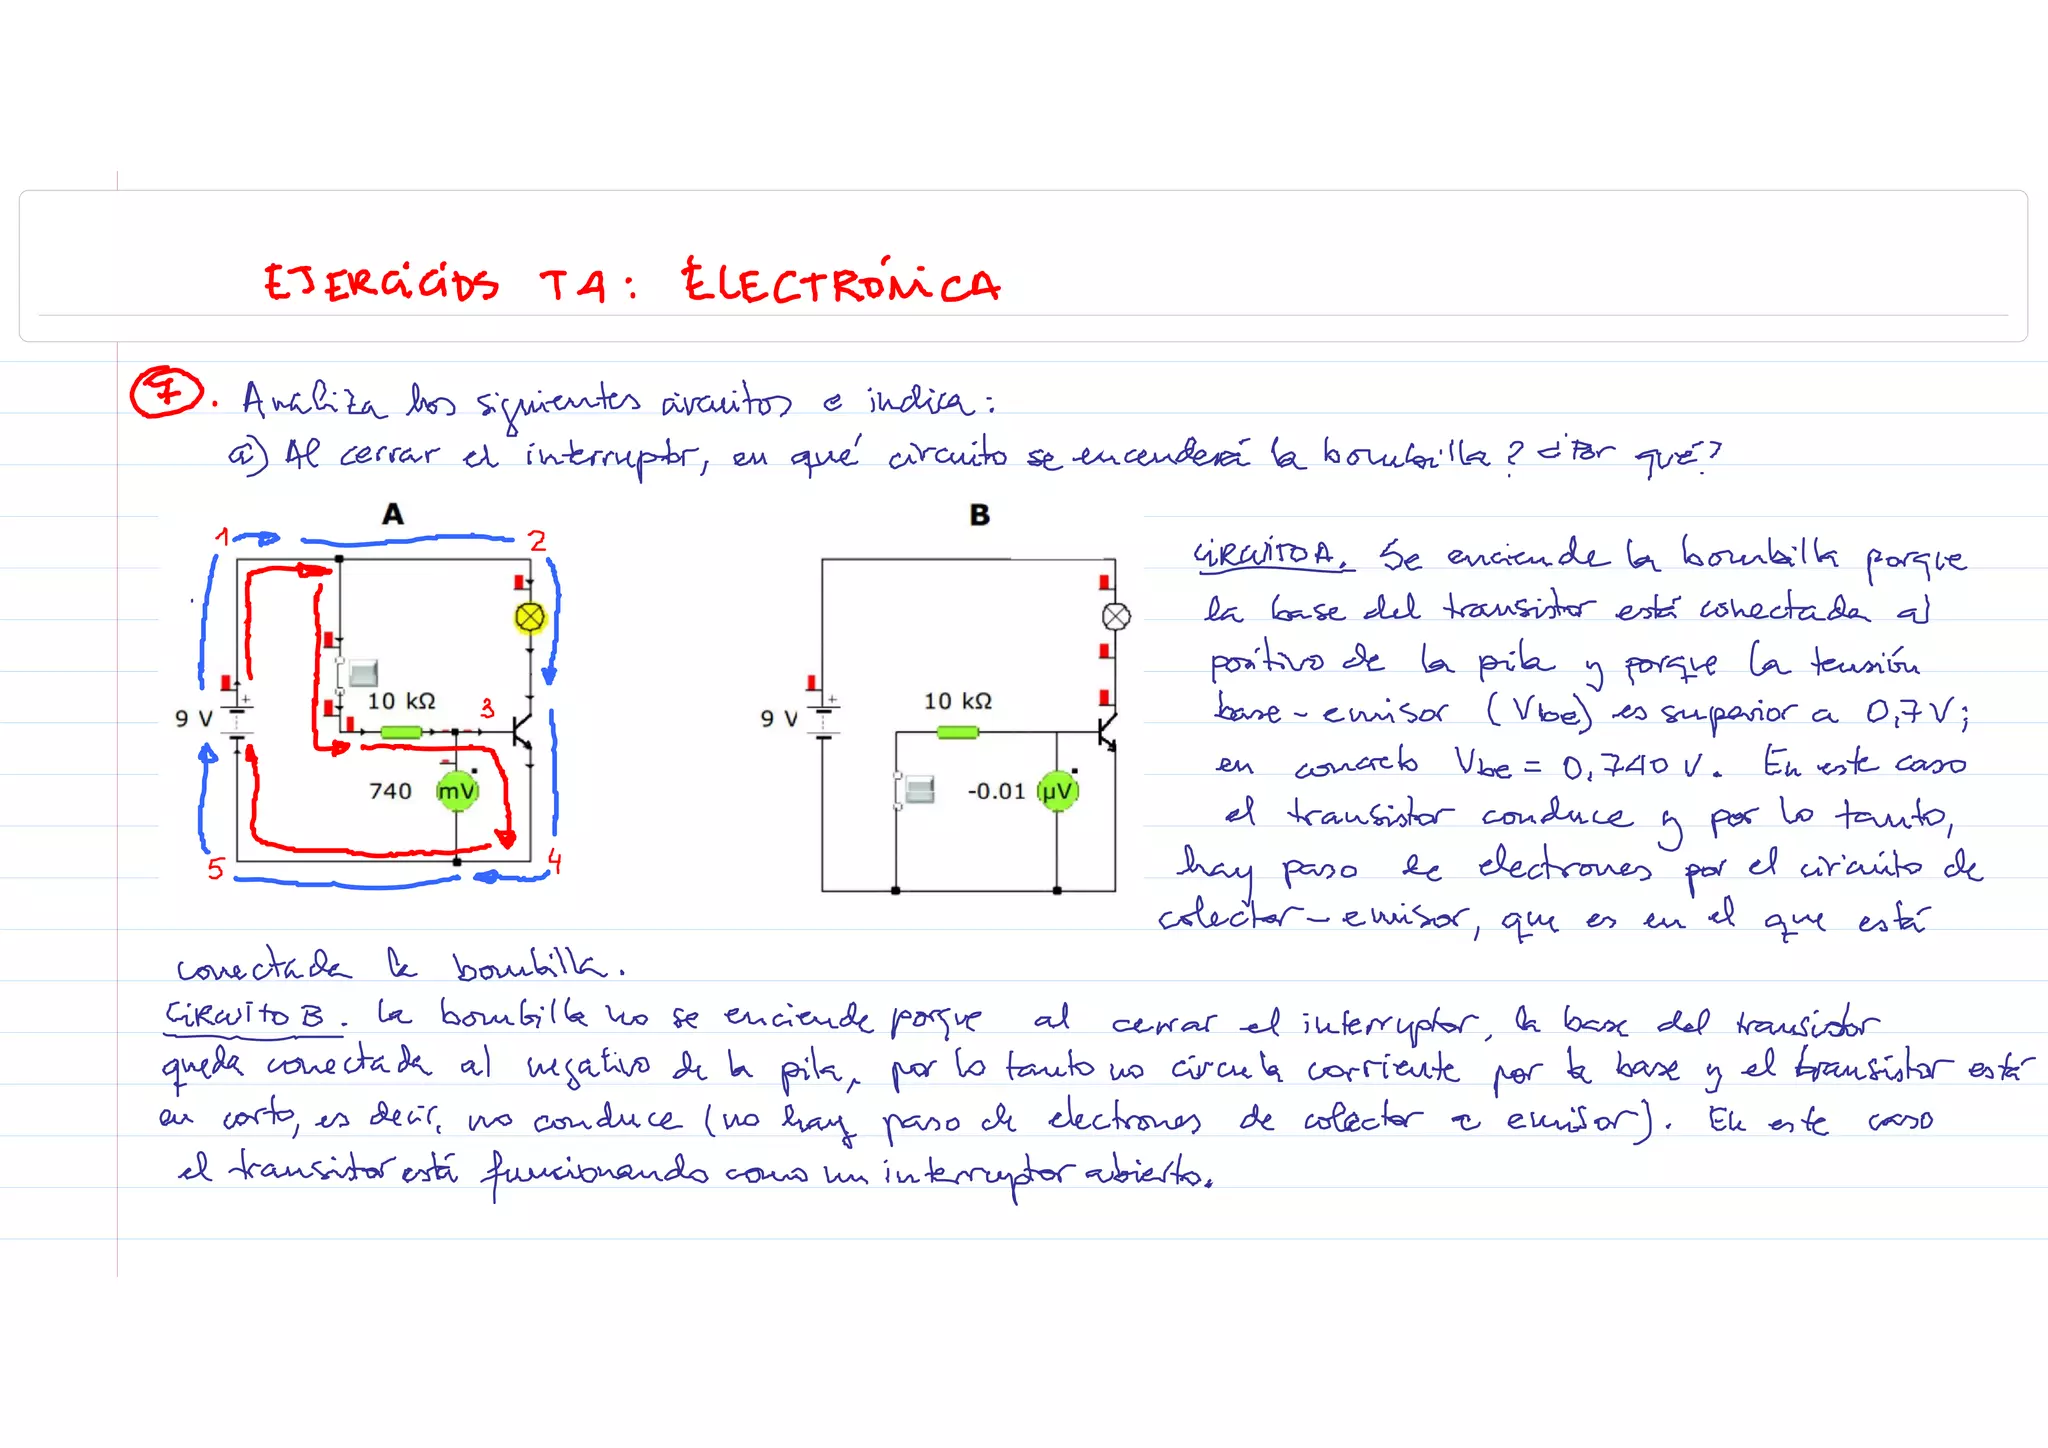 EJERCICIOS T4: ELECTRÓNICA
7. Analiza los siguientes circuitos e indica:
a) Al cerrar el interruptor, en qué circuito se encenderá la bombilla? ¿Por qué?
A
B
1
2
10 kΩ
3
9 V
+
740 mV
5
4
10 kΩ
9 V
+
-0.01 µV
CIRCUITO A. Se enciende la bombilla porque
la base del transistor está conectada al
positivo de la pila y porque la tensión
base-emisor (Vbe) es superior a 0,7V;
en concreto Vbe = 0,740 V. En este caso
el transistor conduce y por lo tanto,
hay paso de electrones por el circuito de
colector-emisor, que es en el que está
conectada la bombilla.
CIRCUITO B. La bombilla no se enciende porque al cerrar el interruptor, la base del transistor
queda conectada al negativo de la pila, por lo tanto no circula corriente por la base y el transistor está
en corto, es decir, no conduce (no hay paso de electrones de colector a emisor). En este caso
el transistor está funcionando como un interruptor abierto.